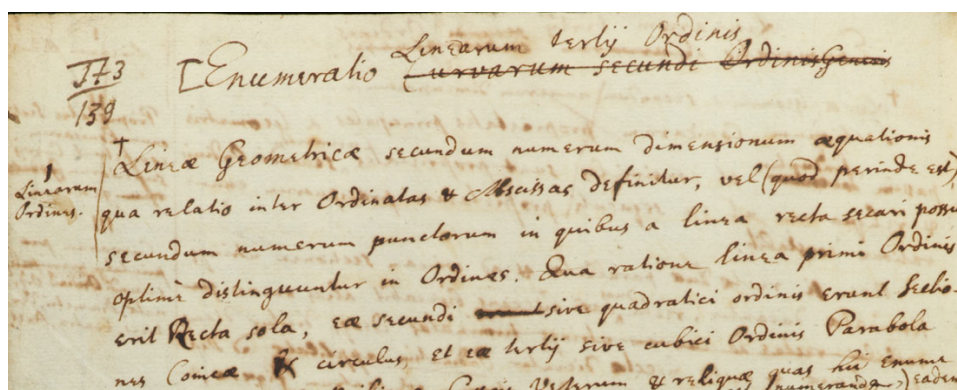 Linearum tertij Ordinis
173
139
[Enumeratio Curvarum secundi Ordinis Generis
† Lineæ Geometricæ secundum numerum dimensionum æquationis
1
Linearum
Ordines.
qua relatio inter Ordinatas & Abscissas definitur, vel (quod perinde est)
secundum numerum punctorum in quibus a linea recta secari possu
optime distinguuntur in Ordines. Qua ratione linea primi Ordinis
erit Recta sola, eæ secundi sive quadratici ordinis erunt Sectio-
nes Conicæ & circulus, et eæ tertij sive cubici Ordinis Parabola
Veterum & reliquæ quas hic enume
(numerandæ) eadem